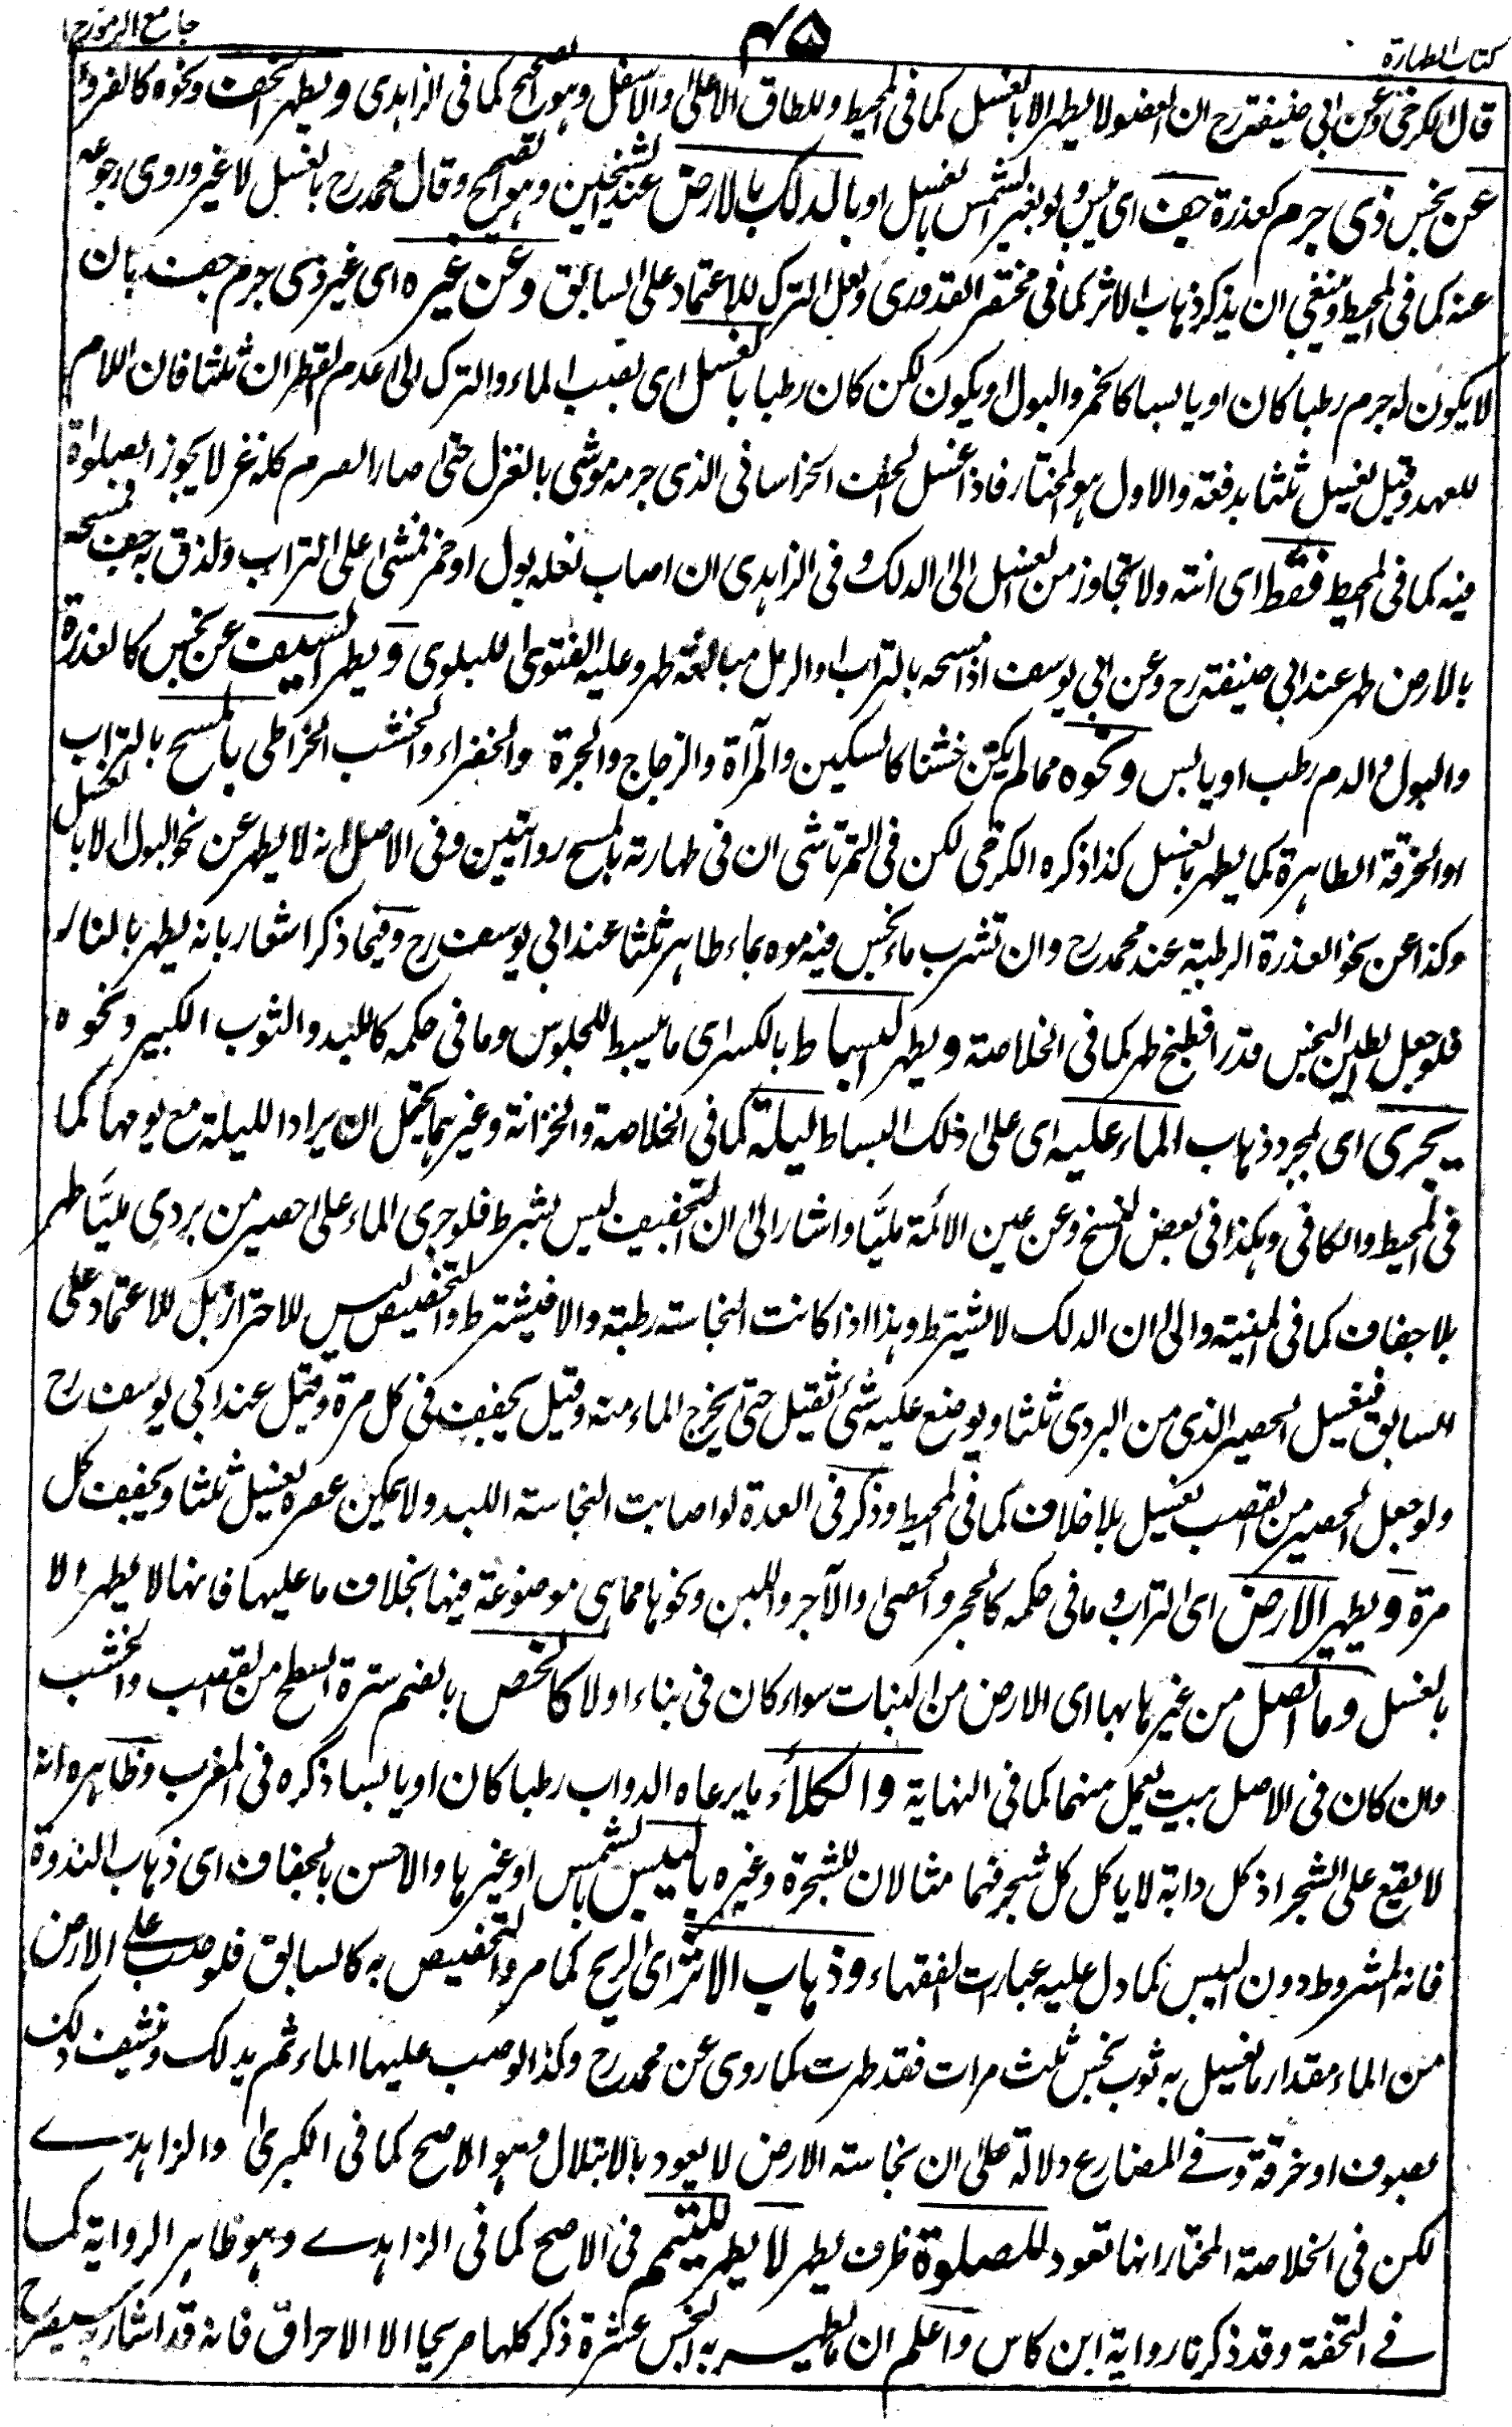 كتاب الطهارة ٤٥ جامع الرموز ج ١
قال الكرخى وعن ابى حنيفة رح ان العضو لا يطهر الا بالغسل كما فى المحيط وللطاق الاعلى والاسفل وهو الصحيح كما فى الزاهدى ويطهر الخف ونحوه كالفرو
عن نجس ذى جرم كعذرة جف اى يبس ولو بغير الشمس بالغسل او بالدلك بالارض عند الشيخين وهو الصحيح وقال محمد رح بالغسل لا غير وروى رجوعه
عنه كما فى المحيط وينبغى ان يذكر ذهاب الاثر كما فى مختصر القدورى ولعل الترك للاعتماد على السابق وعن غيره اى غير ذى جرم جف بان
لا يكون له جرم رطبا كان او يابسا كالخمر والبول او يكون لكن كان رطبا بالغسل اى بصب الماء والترك الى عدم القطران ثلثا فان اللام
للعهد وقيل يغسل ثلثا بدفعة والاول هو المختار فاذا غسل الخف الخراسانى الذى جرمه موشى بالغزل حتى صار الصرم كله غز لا يجوز الصلوة
فيه كما فى المحيط فقط اى انته ولا تتجاوز من الغسل الى الدلك وفى الزاهدى ان اصاب نعله بول او خمر فمشى على التراب ولزق به جف فمسحه
بالارض طهر عند ابى حنيفة رح وعن ابى يوسف اذا مسحه بالتراب او الرمل مبالغة طهر وعليه الفتوى للبلوى ويطهر السيف عن نجس كالعذرة
والبول والدم رطب او يابس ونحوه مما لم يكن خشنا كالسكين والمرآة والزجاج والجرة والخضراء والخشب الخراطى بالمسح بالتراب
او الخرقة الطاهرة كما يطهر بالغسل كذا ذكره الكرخى لكن فى التمرتاشى ان فى طهارته بالمسح روايتين وفى الاصل انه لا يطهر عن نحو البول الا بالغسل
وكذا عن نحو العذرة الرطبة عند محمد رح وان تشرب ماء نجس فيه موه بماء طاهر ثلثا عند ابى يوسف رح وفيما ذكر اشعار بانه يطهر بالنار
فلو جعل الطين النجس قدرا فطبخ طهر كما فى الخلاصة ويطهر البساط بالكسر اى ما يبسط للجلوس وما فى حكمه كاللبد والثوب الكبير ونحوه
يجرى اى لمجرد ذهاب الماء عليه اى على ذلك البساط ليلة كما فى الخلاصة والخزانة وغيرهما يحتمل ان يراد الليلة مع يومها كما
فى المحيط والكافى وهكذا فى بعض النسخ وعن عين الائمة مليا واشار الى ان التجفيف ليس بشرط فلو جرى الماء على حصير من بردى مليا طهر
بلا جفاف كما فى المنية والى ان الدلك لا يشترط وهذا اذا كانت النجاسة رطبة والا فيشترط والتخصيص ليس للاحتراز بل للاعتماد على
السابق فيغسل الحصير الذى من البردى ثلثا ويوضع عليه شئ ثقيل حتى يخرج الماء منه وقيل يجفف فى كل مرة وقيل عند ابى يوسف رح
ولو جعل الحصير من القصب يغسل بلا خلاف كما فى المحيط وذكر فى العدة لو اصابت النجاسة اللبد ولا يمكن عصره يغسل ثلثا ويجفف كل
مرة ويطهر الارض اى التراب وما فى حكمه كالحجر والحصى والآجر واللبن ونحوها مما هى موضوعة فيها بخلاف ما عليها فانها لا يطهر الا
بالغسل وما اتصل من غيرها بها اى الارض من النبات سواء كان فى بناء او لا كالخص بالضم سترة السطح من القصب والخشب
وان كان فى الاصل بيت يعمل منهما كما فى النهاية والكلأ ما يرعاه الدواب رطبا كان او يابسا ذكره فى المغرب وظاهره انه
لا يقع على الشجر اذ كل دابة لا ياكل كل شجر فهما مثالان للشجرة وغيره باليبس بالشمس او غيرها والاحسن بالجفاف اى ذهاب الندوة
فانه المشروط دون اليبس كما دل عليه عبارات الفقهاء وذهاب الاثر اى الريح كما مر والتخصيص به كالسابق فلو صب على الارض
من الماء مقدار ما يغسل به ثوب نجس ثلث مرات فقد طهرت كما روى عن محمد رح وكذا لو صب عليها الماء ثم يدلك وينشف ذلك
بصوف او خرقة وفى المضارع دلالة على ان نجاسة الارض لا يعود بالابتلال وهو الاصح كما فى الكبرى والزاهدى
لكن فى الخلاصة المختار انها تعود للصلوة ظرف يطهر لا يطهر للتيمم فى الاصح كما فى الزاهدى وهو ظاهر الرواية كما
فى التحفة وقد ذكرنا رواية ابن كاس واعلم ان ما يطهر به النجس عشرة ذكر كلها صريحا الا الاحراق فانه قد اشار وسيصرح